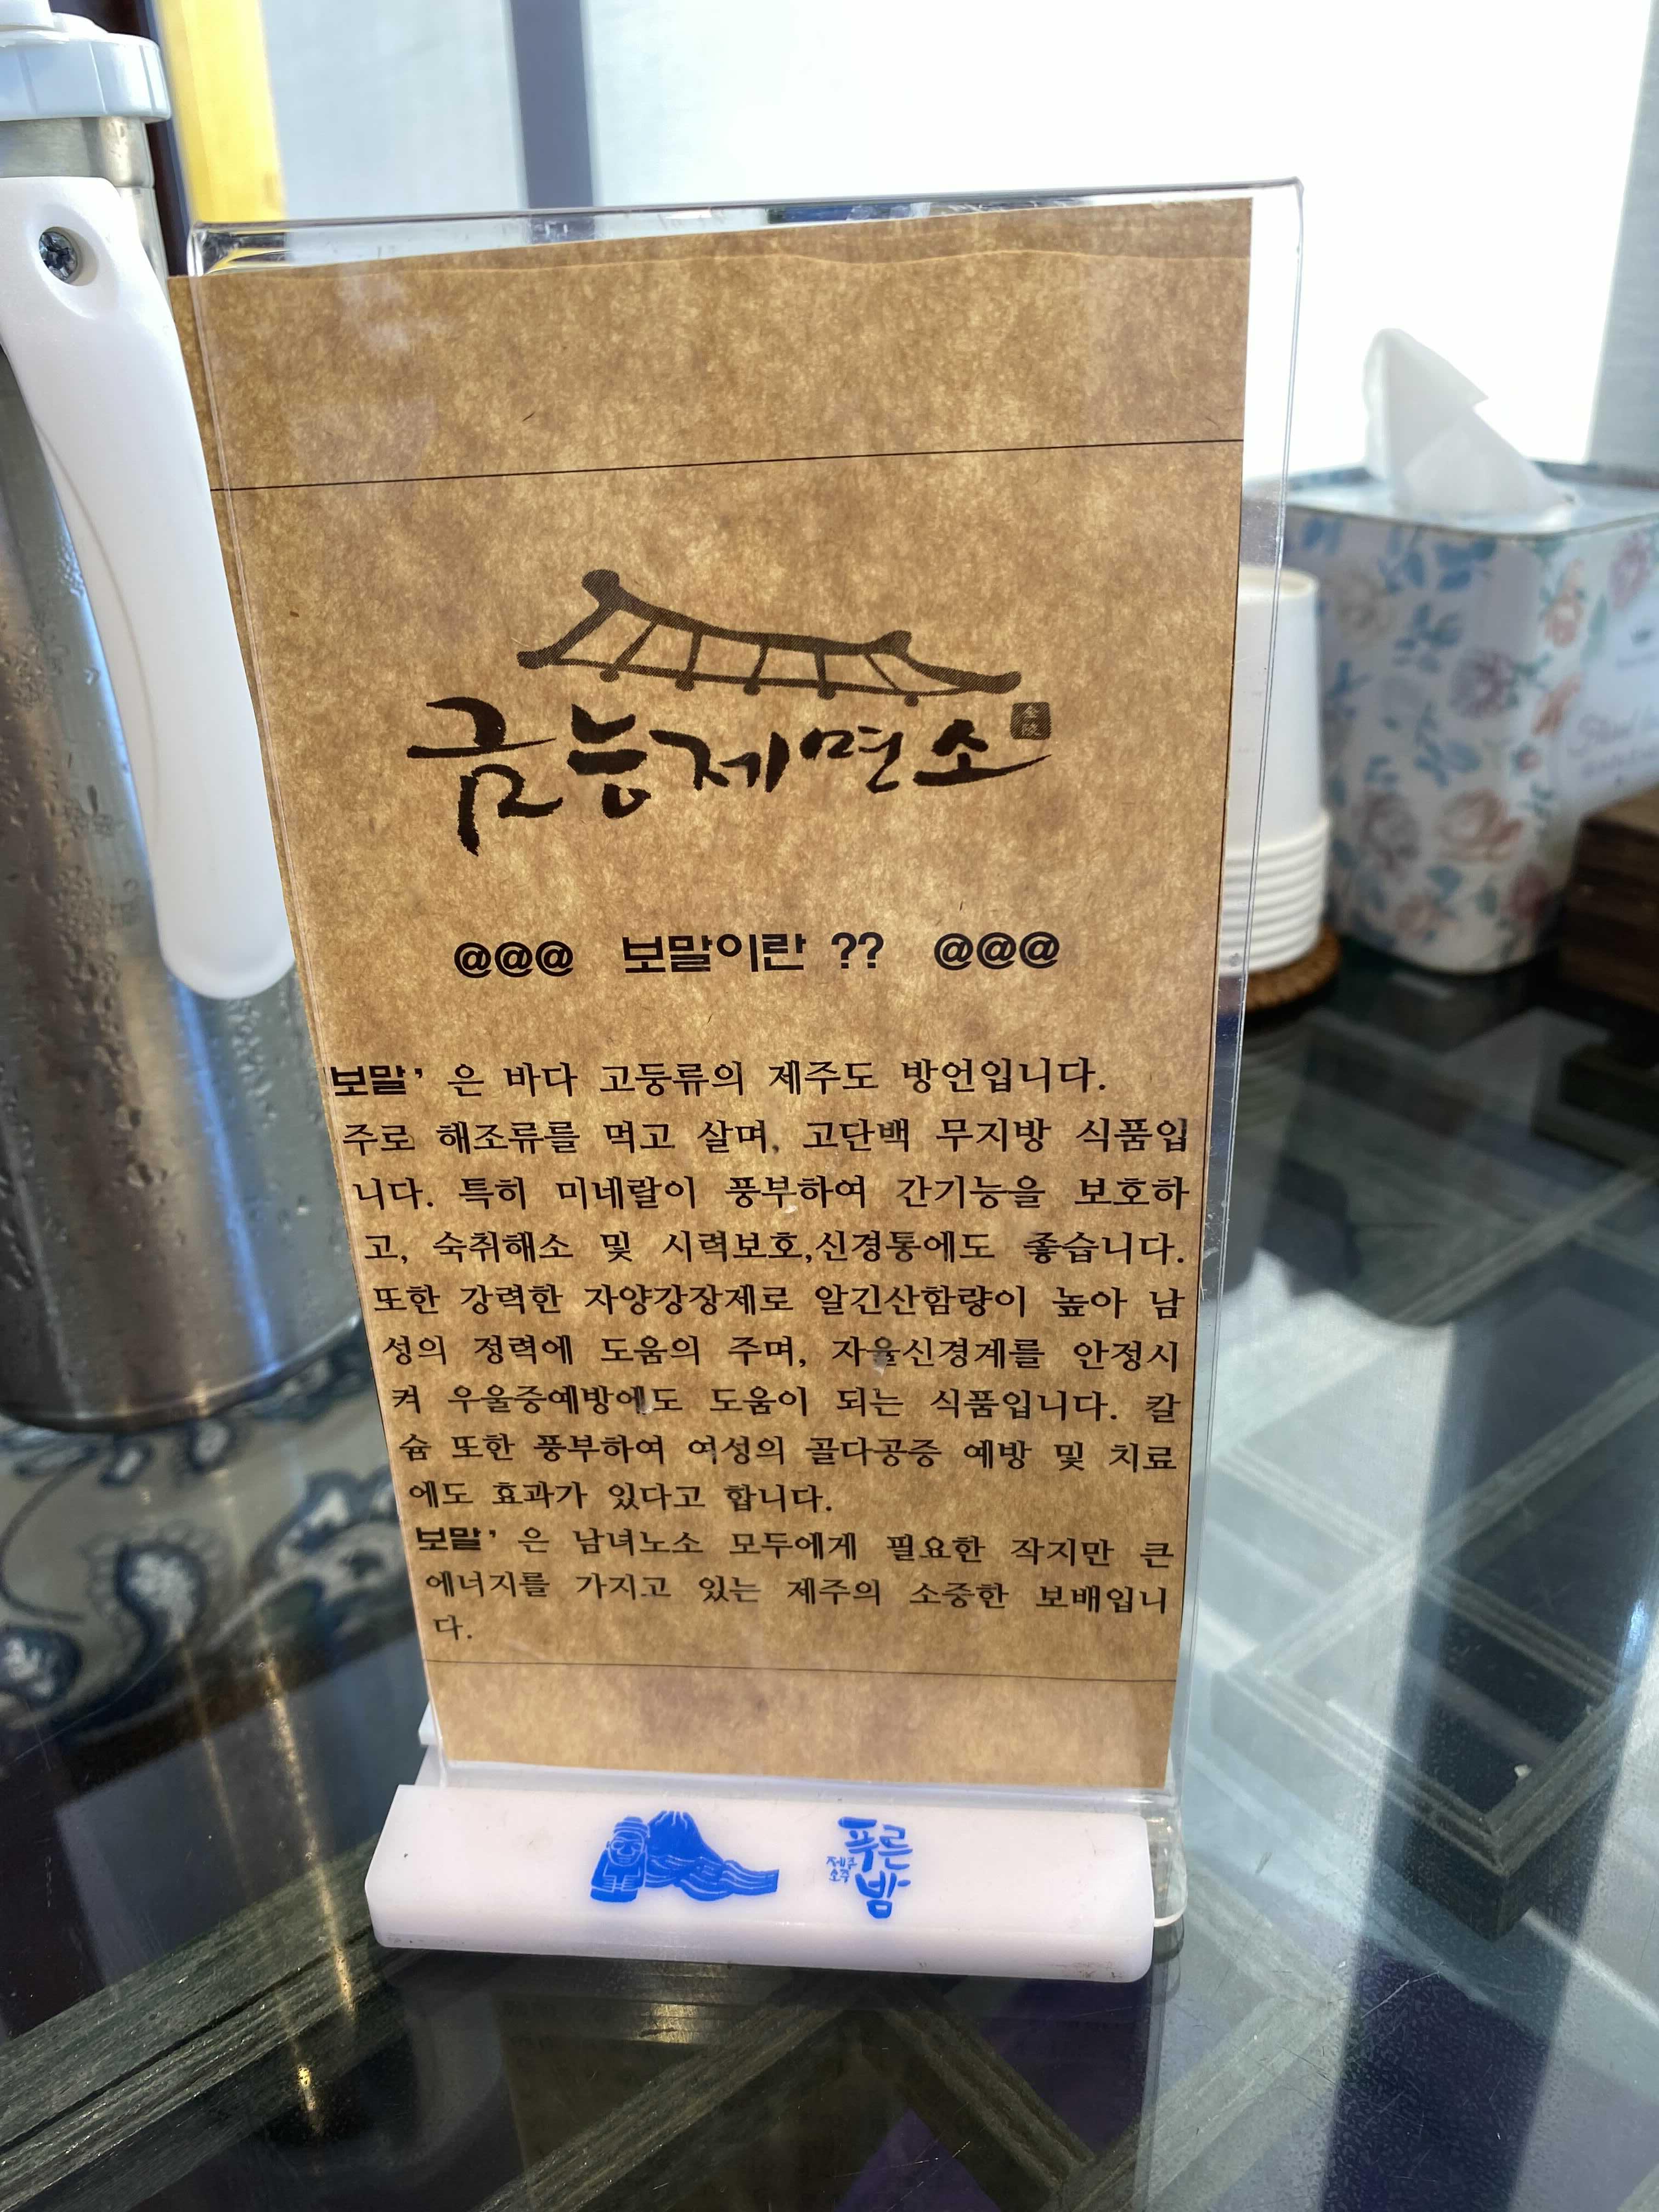 금능제면소
@@@ 보말이란 ?? @@@
'보말' 은 바다 고둥류의 제주도 방언입니다.
주로 해조류를 먹고 살며, 고단백 무지방 식품입
니다. 특히 미네랄이 풍부하여 간기능을 보호하
고, 숙취해소 및 시력보호,신경통에도 좋습니다.
또한 강력한 자양강장제로 알긴산함량이 높아 남
성의 정력에 도움의 주며, 자율신경계를 안정시
켜 우울증예방에도 도움이 되는 식품입니다. 칼
슘 또한 풍부하여 여성의 골다공증 예방 및 치료
에도 효과가 있다고 합니다.
보말' 은 남녀노소 모두에게 필요한 작지만 큰
에너지를 가지고 있는 제주의 소중한 보배입니
다.
제주
소주
푸른
밤